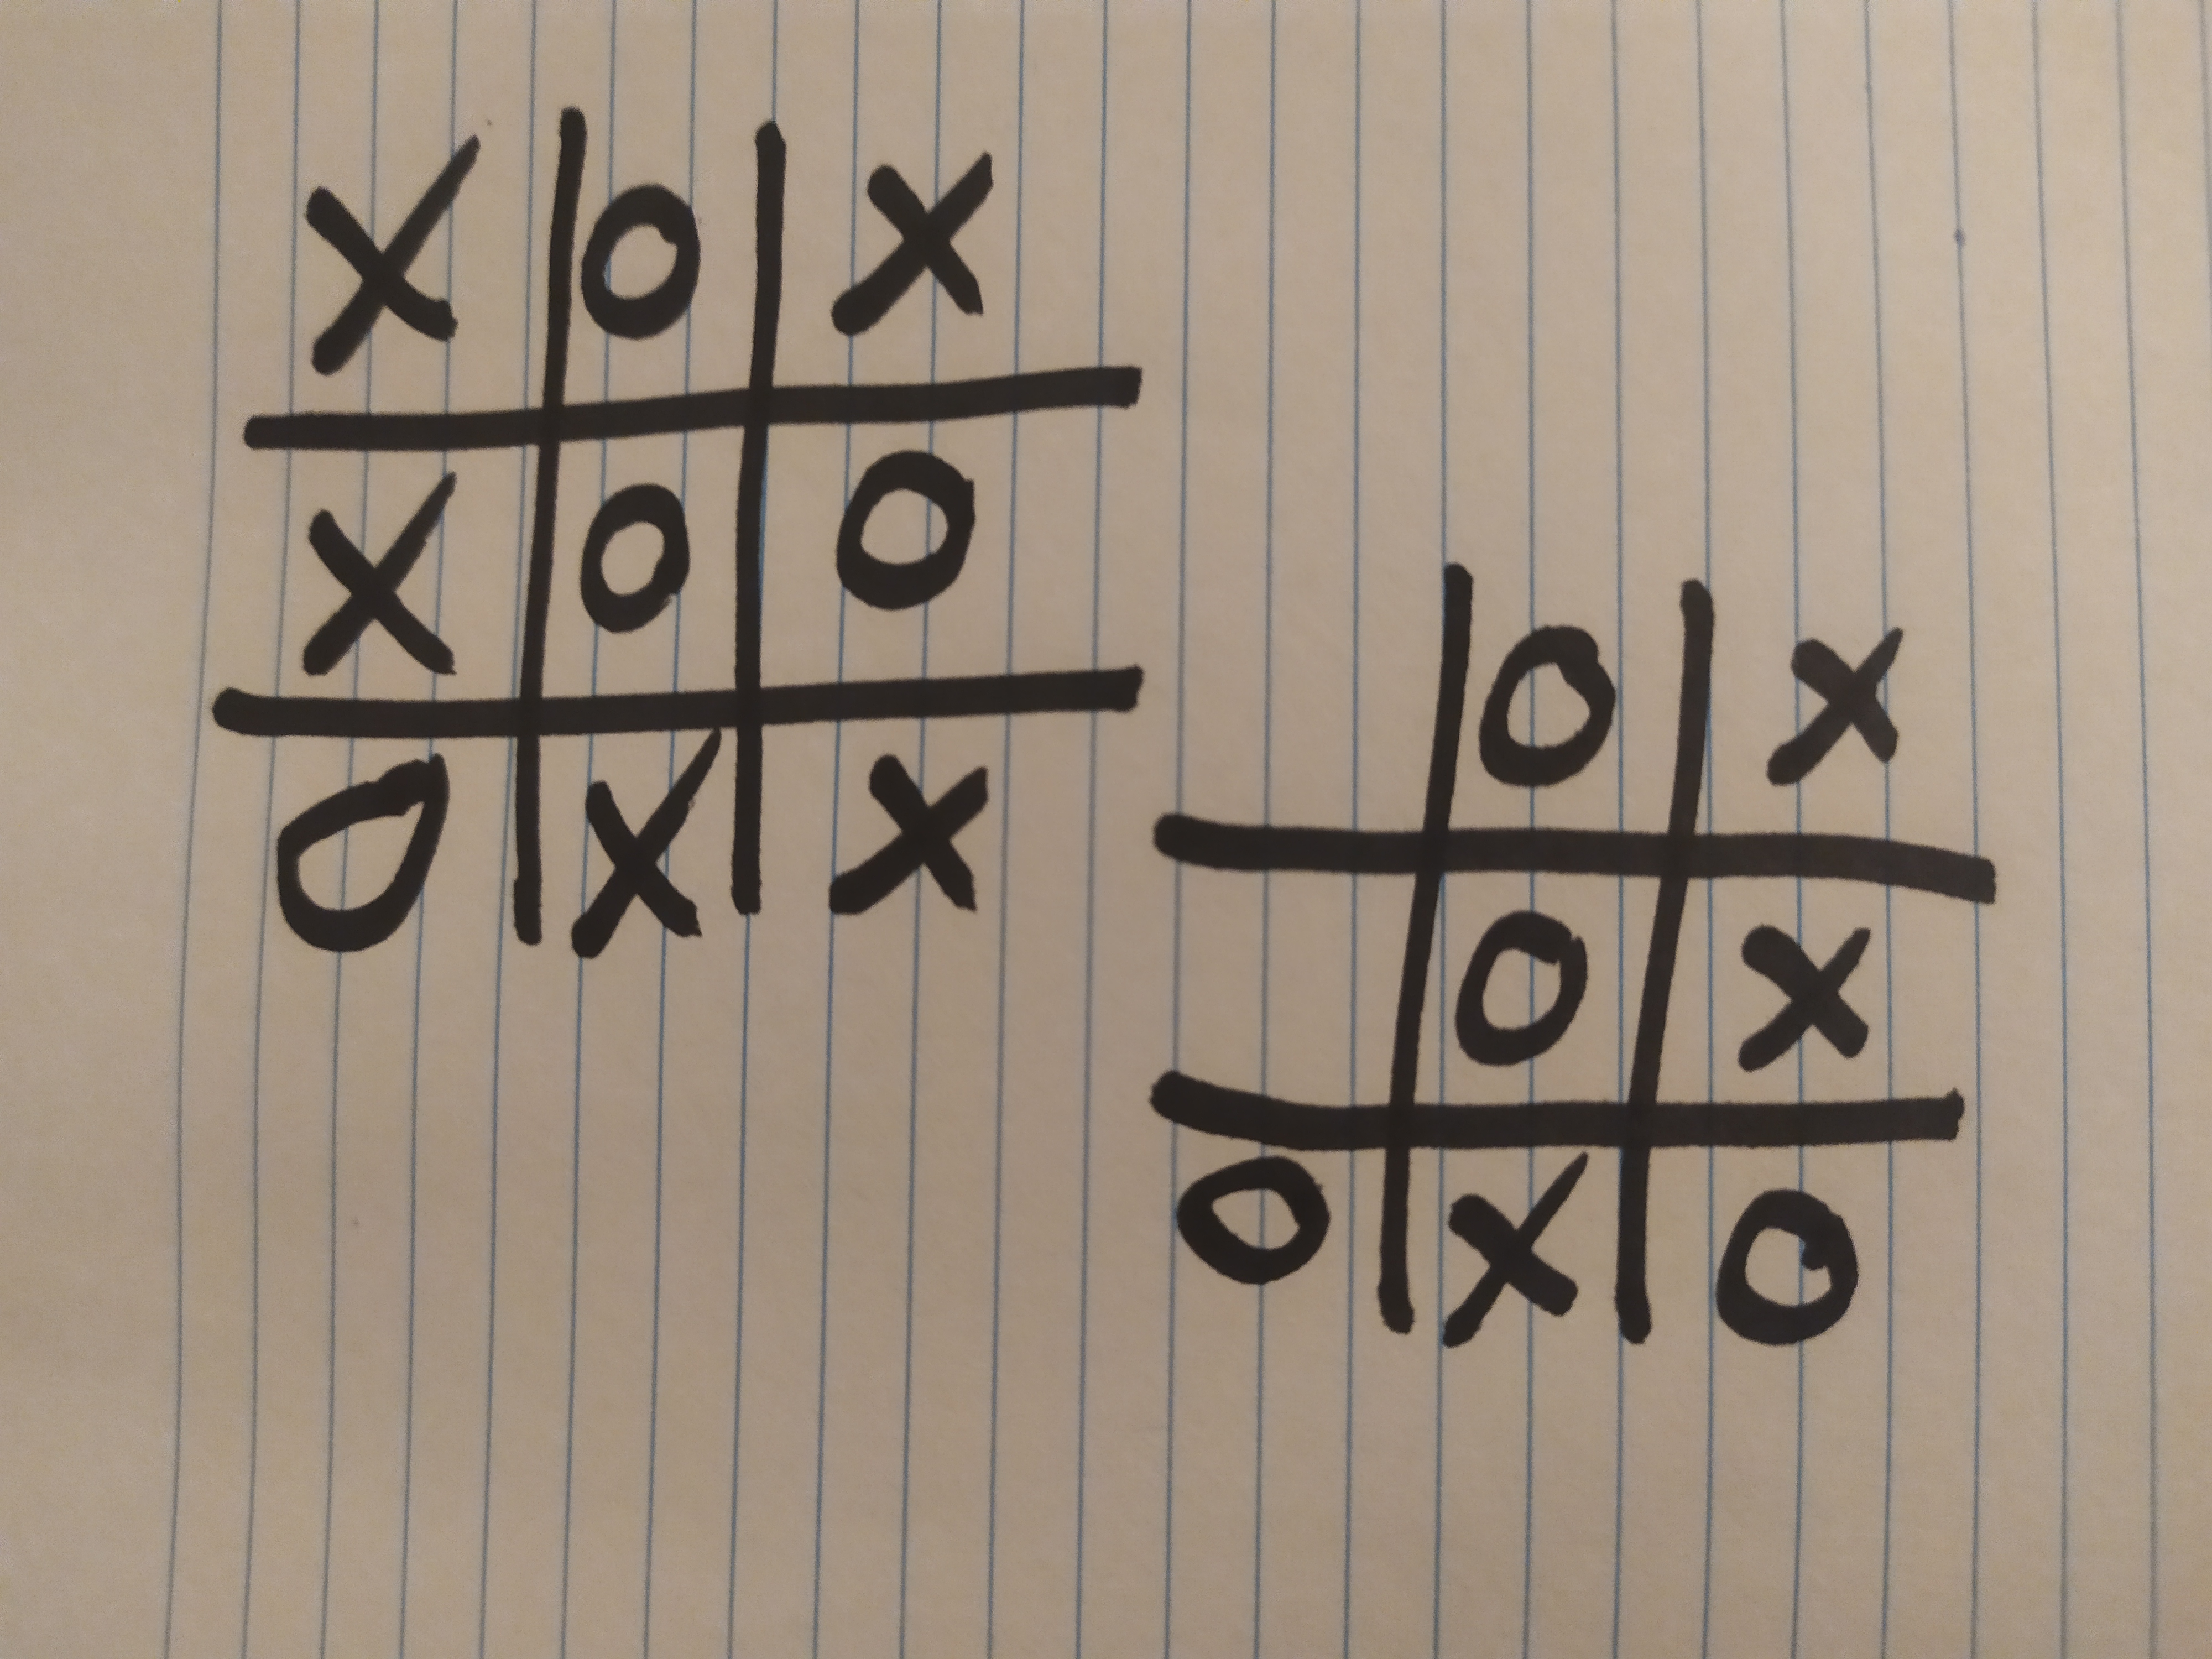 X O X
X O O
O X X
O X
O X
O X O